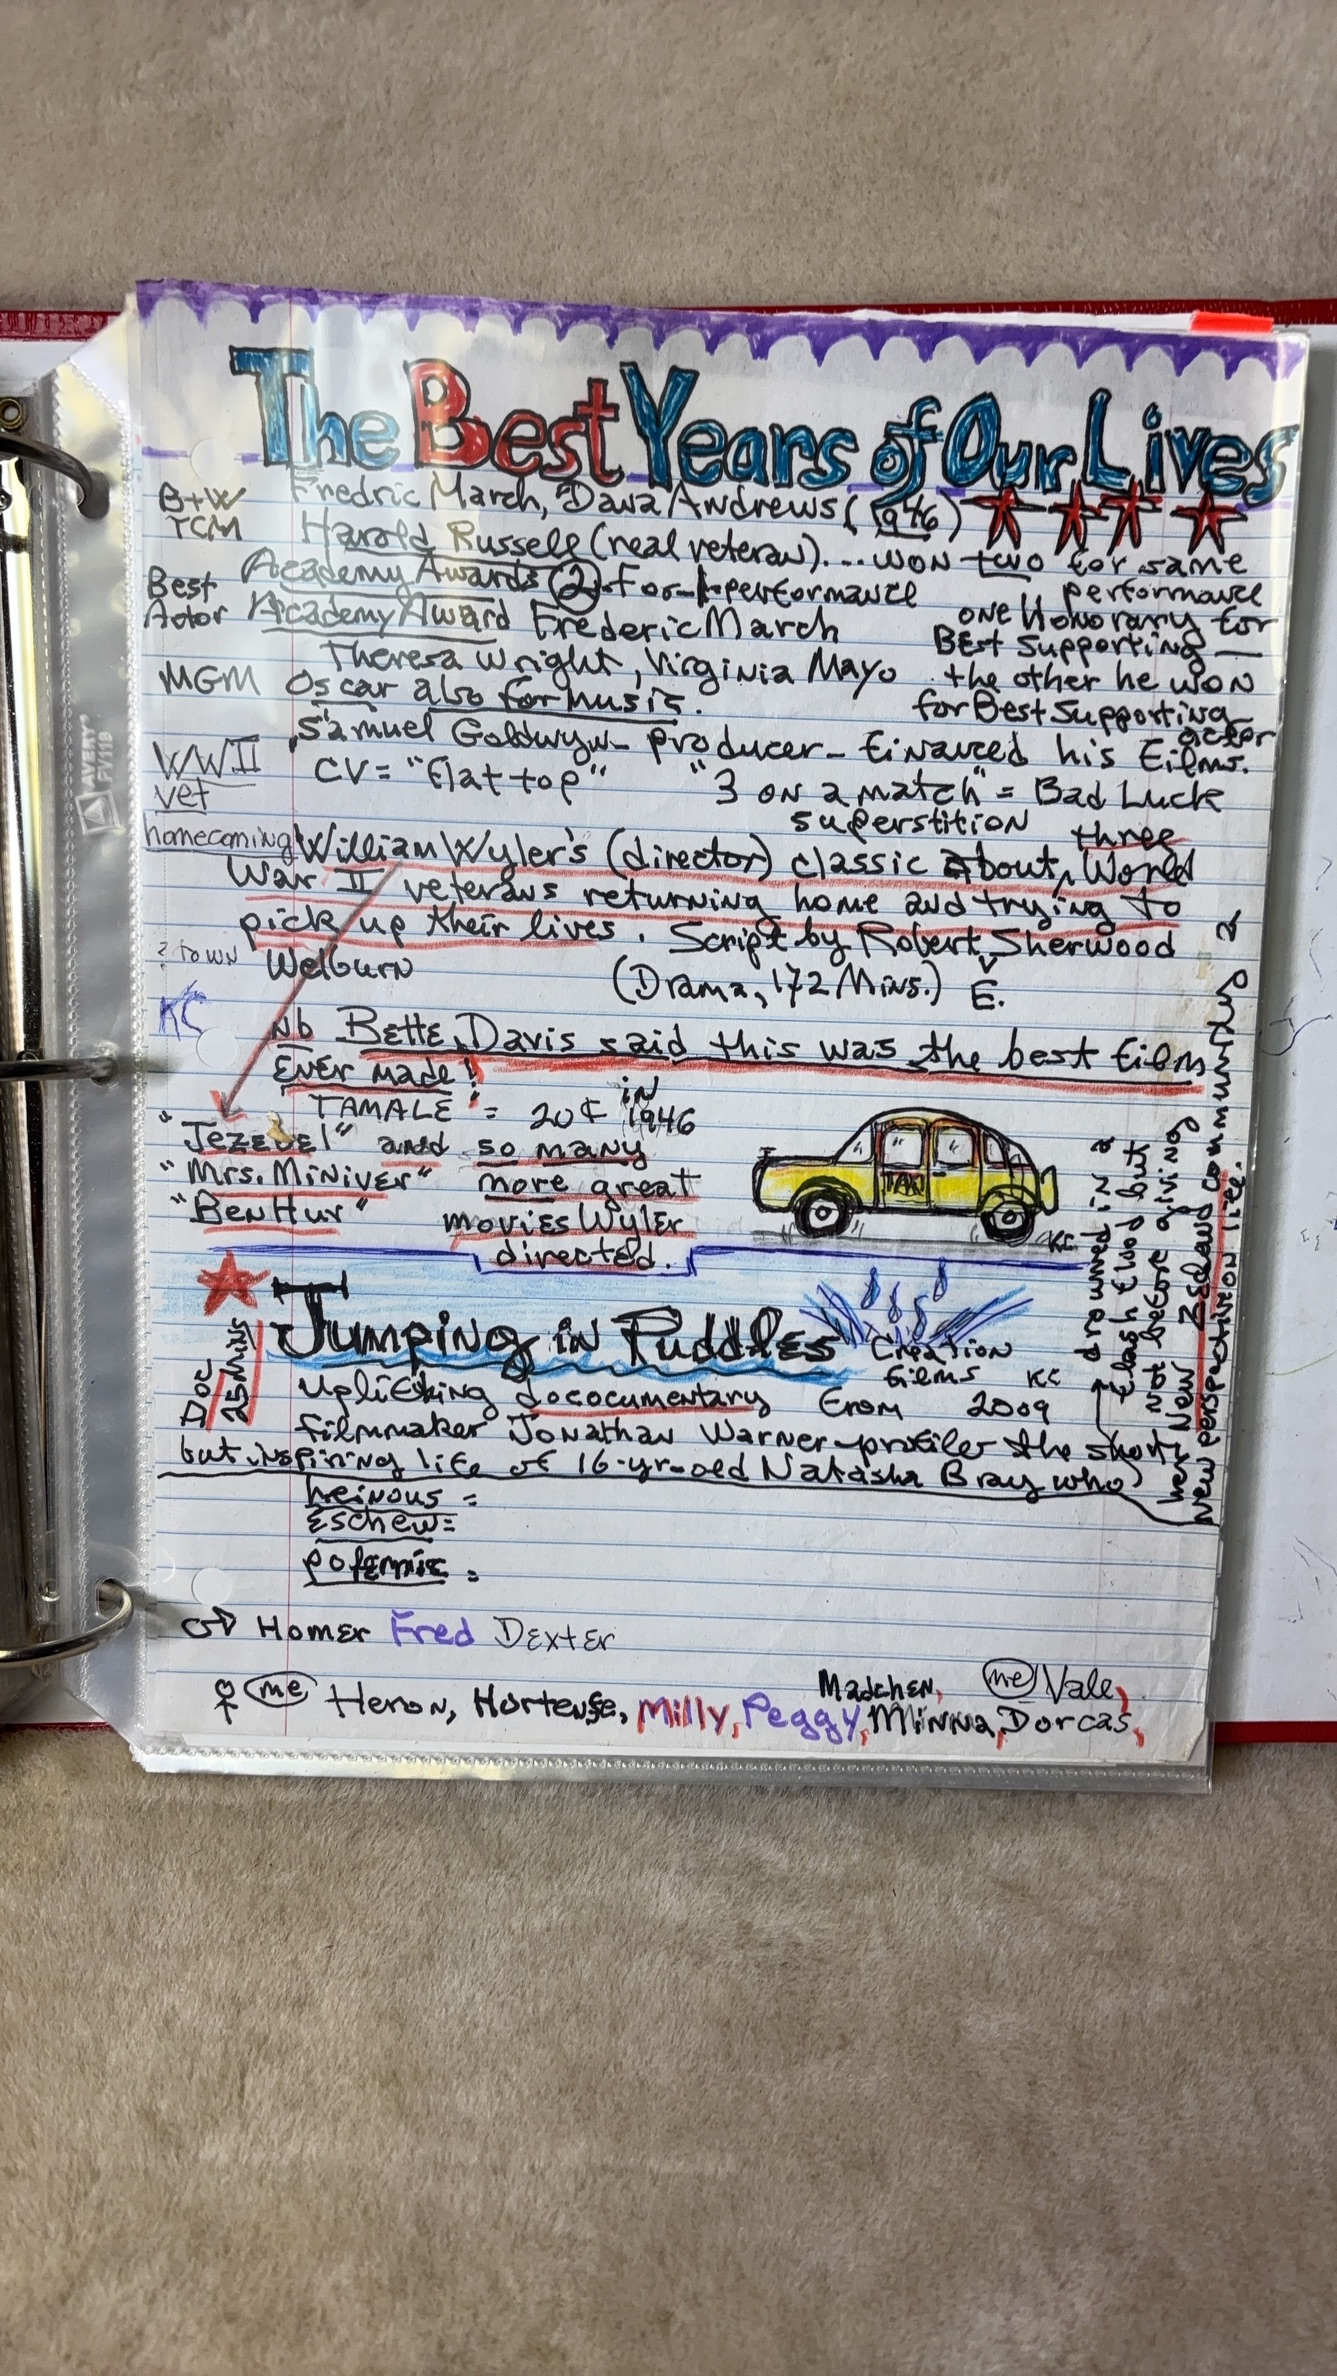 The Best Years of Our Lives
B+W Fredric March, Dana Andrews (1946)
TCM Harold Russell (real veteran)... won two for same performance
Best Academy Awards (2) for 1 performance
one Honorary for
Actor Academy Award Frederic March
Best Supporting —
Theresa Wright, Virginia Mayo
the other he won
MGM Oscar also for music.
for Best Supporting actor
Samuel Goldwyn - producer - financed his films.
WWII
vet
homecoming
CV = "flat top" "3 on a match" = Bad Luck
superstition
William Wyler's (director) classic about three World
War II veterans returning home and trying to
pick up their lives. Script by Robert E. Sherwood
? Town Welburn (Drama, 172 Mins.)
KC
Nb Bette Davis said this was the best film
Ever made!
TAMALE = 20¢ in 1946
"Jezebel" and so many
"Mrs. Miniver" more great
"Ben Hur" movies Wyler
directed.
TAXI
KC
Jumping in Puddles
Creation
films KC
Doc
25 mins
Uplifting dococumentary from 2009
filmmaker Jonathan Warner profiles the short
but inspiring life of 16-yr-old Natasha Bray who
drowned in a
flash flood but
not before giving
her New Zealand communities a
new perspective on life.
heinous =
Eschew =
polemic =
♂ Homer Fred Dexter
♀ me Heron, Hortense, Milly, Peggy, Minna, Dorcas,
Madchen, me Vale,
AVERY